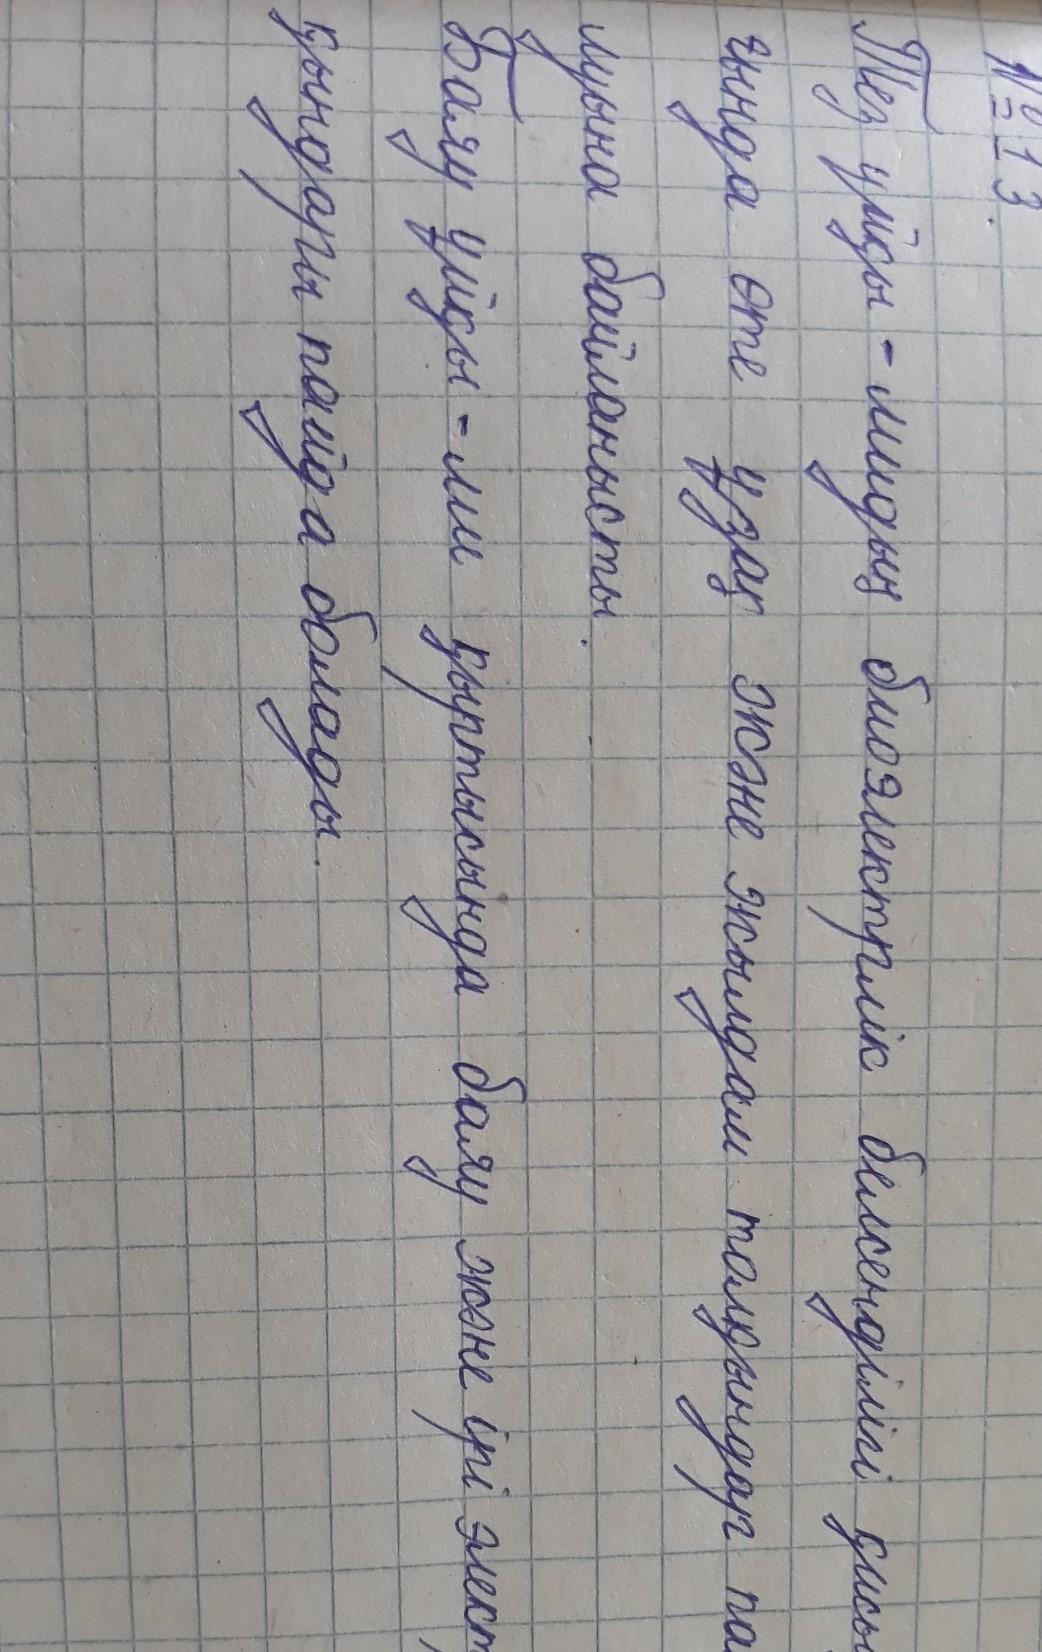 №13.
Тез ұйқы - мидың биоэлектрлік белсенділігі қисы
ғында өте ұзақ және жылдам толқындар па
луына байланысты.
Баяу ұйқы - ми қыртысында баяу және ірі элект
қындары пайда болады.